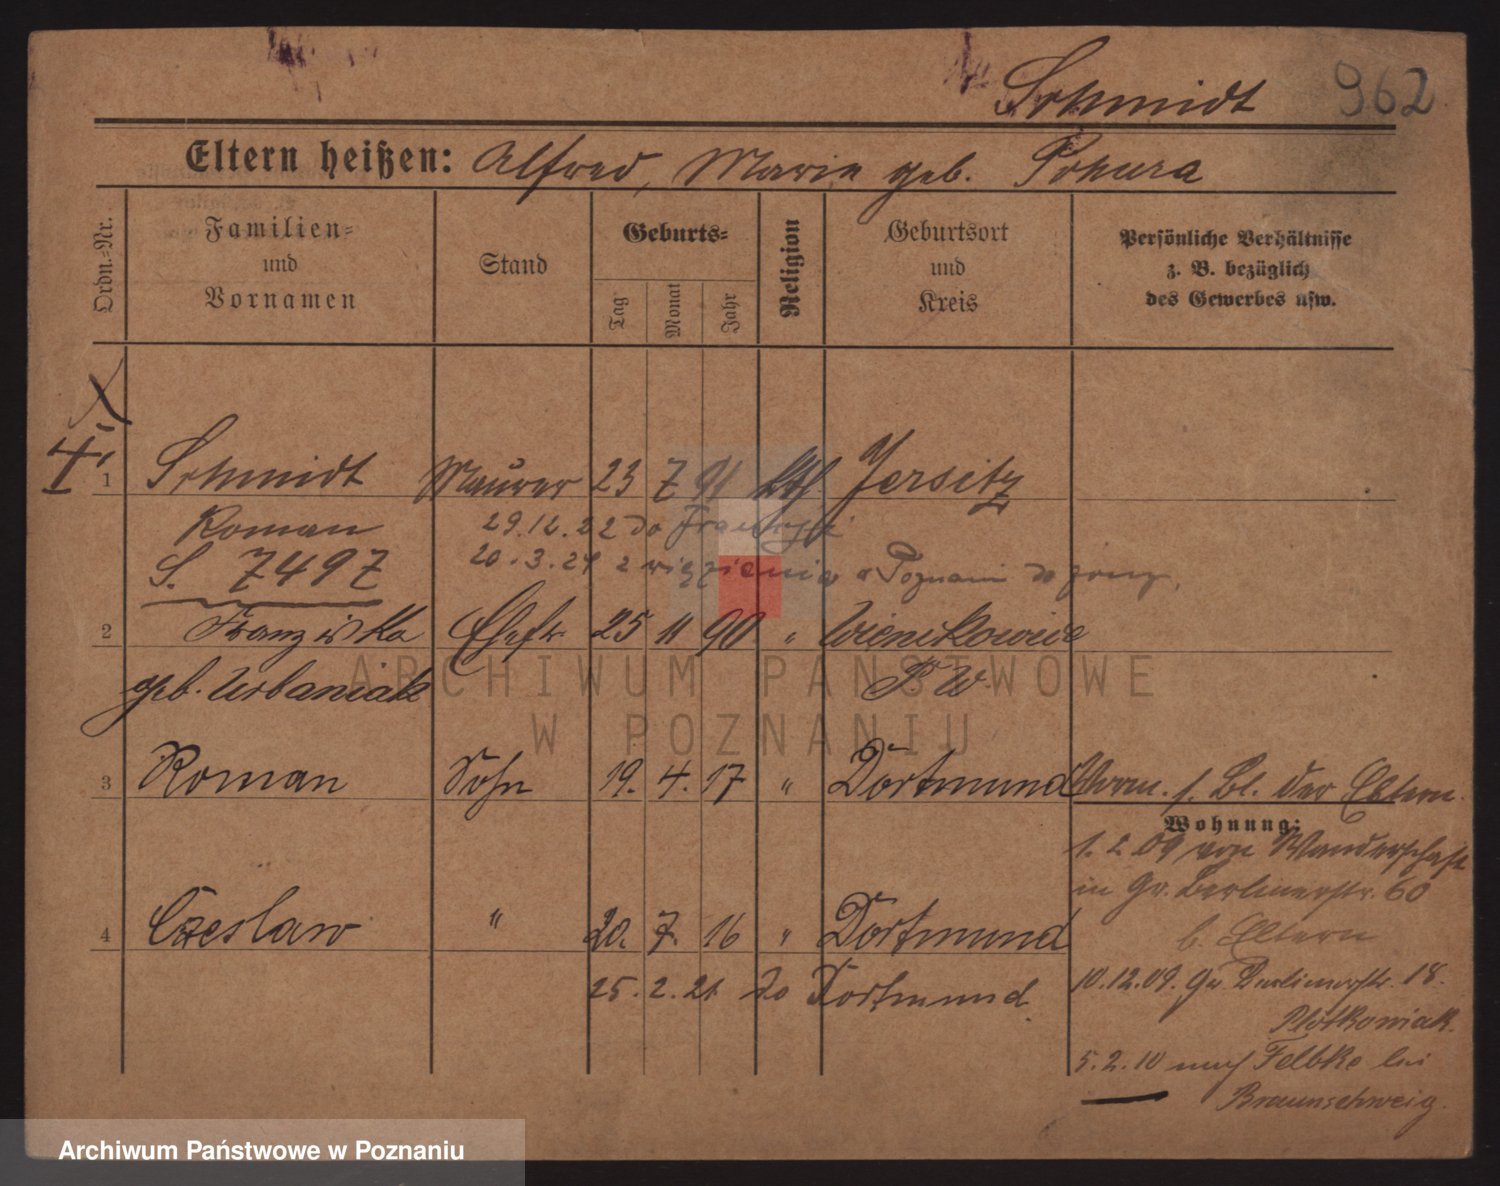 Schmidt 962
Eltern heißen: Alfred, Marie geb. Pokura
Ordn.-Nr.
Familien-
und
Vornamen
Stand
Geburts-
Tag
Monat
Jahr
Religion
Geburtsort
und
Kreis
Persönliche Verhältnisse
z. B. bezüglich
des Gewerbes usw.
1 Schmidt Maurer 23 7 91 kth Jersitz
Roman 29.12.22 do Francyi
S. 7497 20.3.24 z więzienia w Poznaniu do żony,
2 Franziska Ehefr 25 11 90 "
geb. Urbaniak P. W.
3 Roman Sohn 19. 4. 17 " Dortmund Vorm. s. Bl. der Eltern.
Wohnung:
1. 2 09 von Wanderschaft
in Gr. Berlinerstr. 60
4 Czeslaw " 20. 7. 16 " Dortmund b. Eltern
25. 2. 21 do Dortmund 10.12.09. Gr. Berlinerstr. 18.
Plotkowiak.
5. 2. 10 nach Felbke bei
Braunschweig.
ARCHIWUM PAŃSTWOWE
W POZNANIU
Archiwum Państwowe w Poznaniu